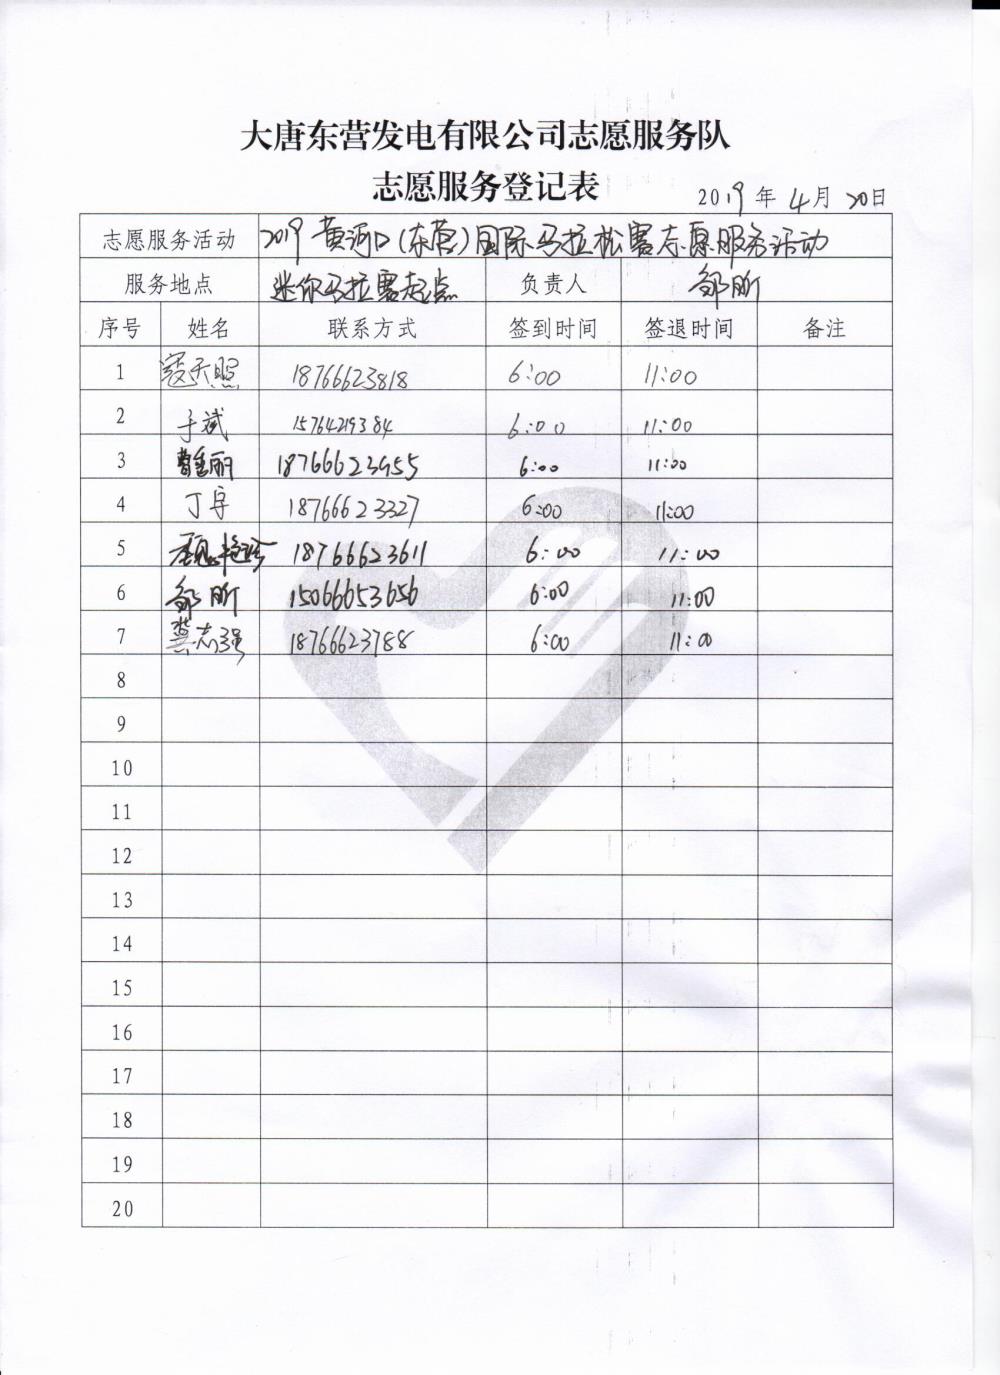 大唐东营发电有限公司志愿服务队
志愿服务登记表
2019年4月20日
志愿服务活动 2019黄河口(东营)国际马拉松赛志愿服务活动
服务地点 迷你马拉赛起点 负责人 邹昕
序号 姓名 联系方式 签到时间 签退时间 备注
1 寇天照 18766623818 6:00 11:00
2 于斌 15764219384 6:00 11:00
3 18766623455 6:00 11:00
4 丁宇 18766623327 6:00 11:00
5 18766623611 6:00 11:00
6 邹昕 15066653656 6:00 11:00
7 龚志强 18766623788 6:00 11:00
8
9
10
11
12
13
14
15
16
17
18
19
20